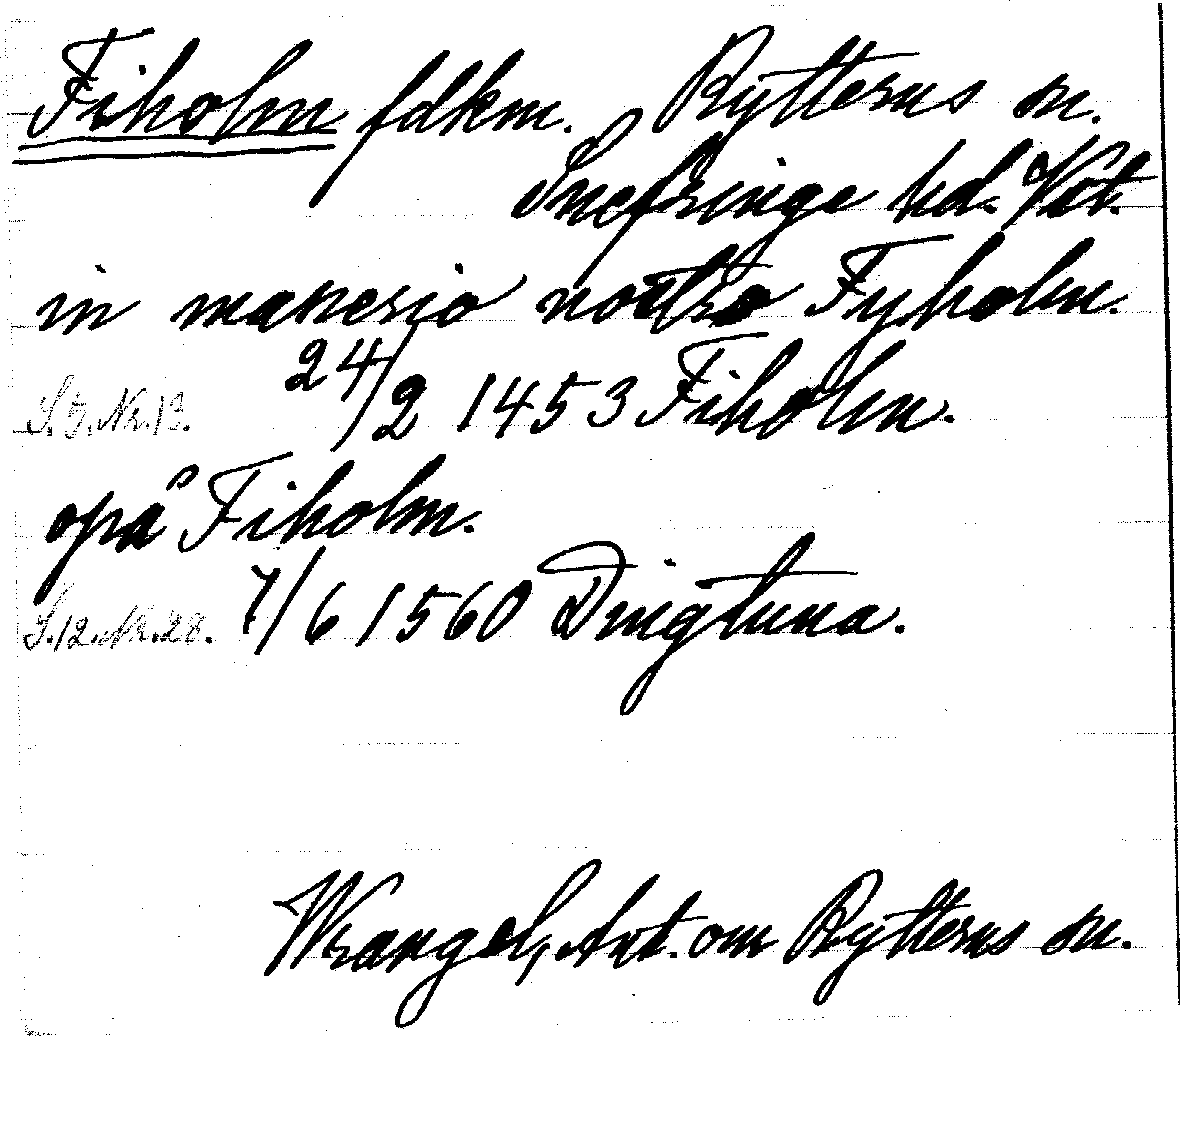 Fiholm fdkm. Rytterns sn.
Snefringe hd. Vst.
in manerio nostro Fyholm.
S. 5. Nr. 13. 24/2 1453 Fiholm.
opå Fiholm.
S. 12. Nr. 28. 7/6 1560 Dingtuna.
Wrangel, Ant. om Rytterns sn.